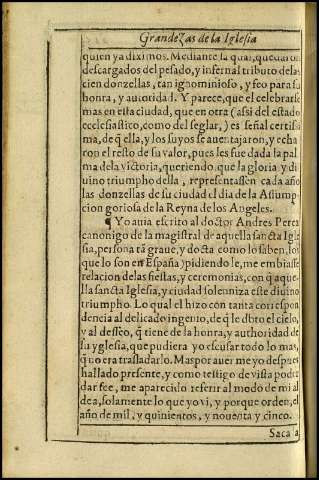 Grandezas de la Iglesia
quien ya diximos. Mediante la qual, quedaron
descargados del pesado, y infernal tributo de las
cien donzellas, tan ignominioso, y feo para su
honra, y autoridad. Y parece, que el celebrarse
mas en esta ciudad, que en otra (assi del estado
ecclesiastico, como del seglar,) es señal certissi
ma, de q̃ ella, y los suyos se auentajaron, y echa
ron el resto de su valor, pues les fue dada la pal
ma dela victoria, queriendo que la gloria y di
uino triumpho della, representassen cada año
las donzellas de su ciudad el dia de la Assump
cion goriosa de la Reyna de los Angeles.
¶ Yo auia escrito al doctor Andres Perea
canonigo de la magistral de aquella sancta Igle
sia, persona tã graue, y docta como lo saben, los
que lo son en España) pidiendole, me embiasse
relacion de las fiestas, y ceremonias, con q̃ aque
lla sancta Iglesia, y ciudad solenniza este diuino
triumpho. Lo qual el hizo con tanta correspon
dencia al delicado ingenio, de q̃ le dotro el cielo,
y al desseo, q̃ tiene de la honra, y authoridad de
su yglesia, que pudiera yo escusar todo lo mas,
q̃ no era trasladarlo. Mas por auer me yo despues
hallado presente, y como testigo de vista poder
dar fee, me aparecido referir al modo de mi al
dea, solamente lo que yo vi, y porque orden, el
año de mil, y quinientos, y nouenta y cinco.
Saca a